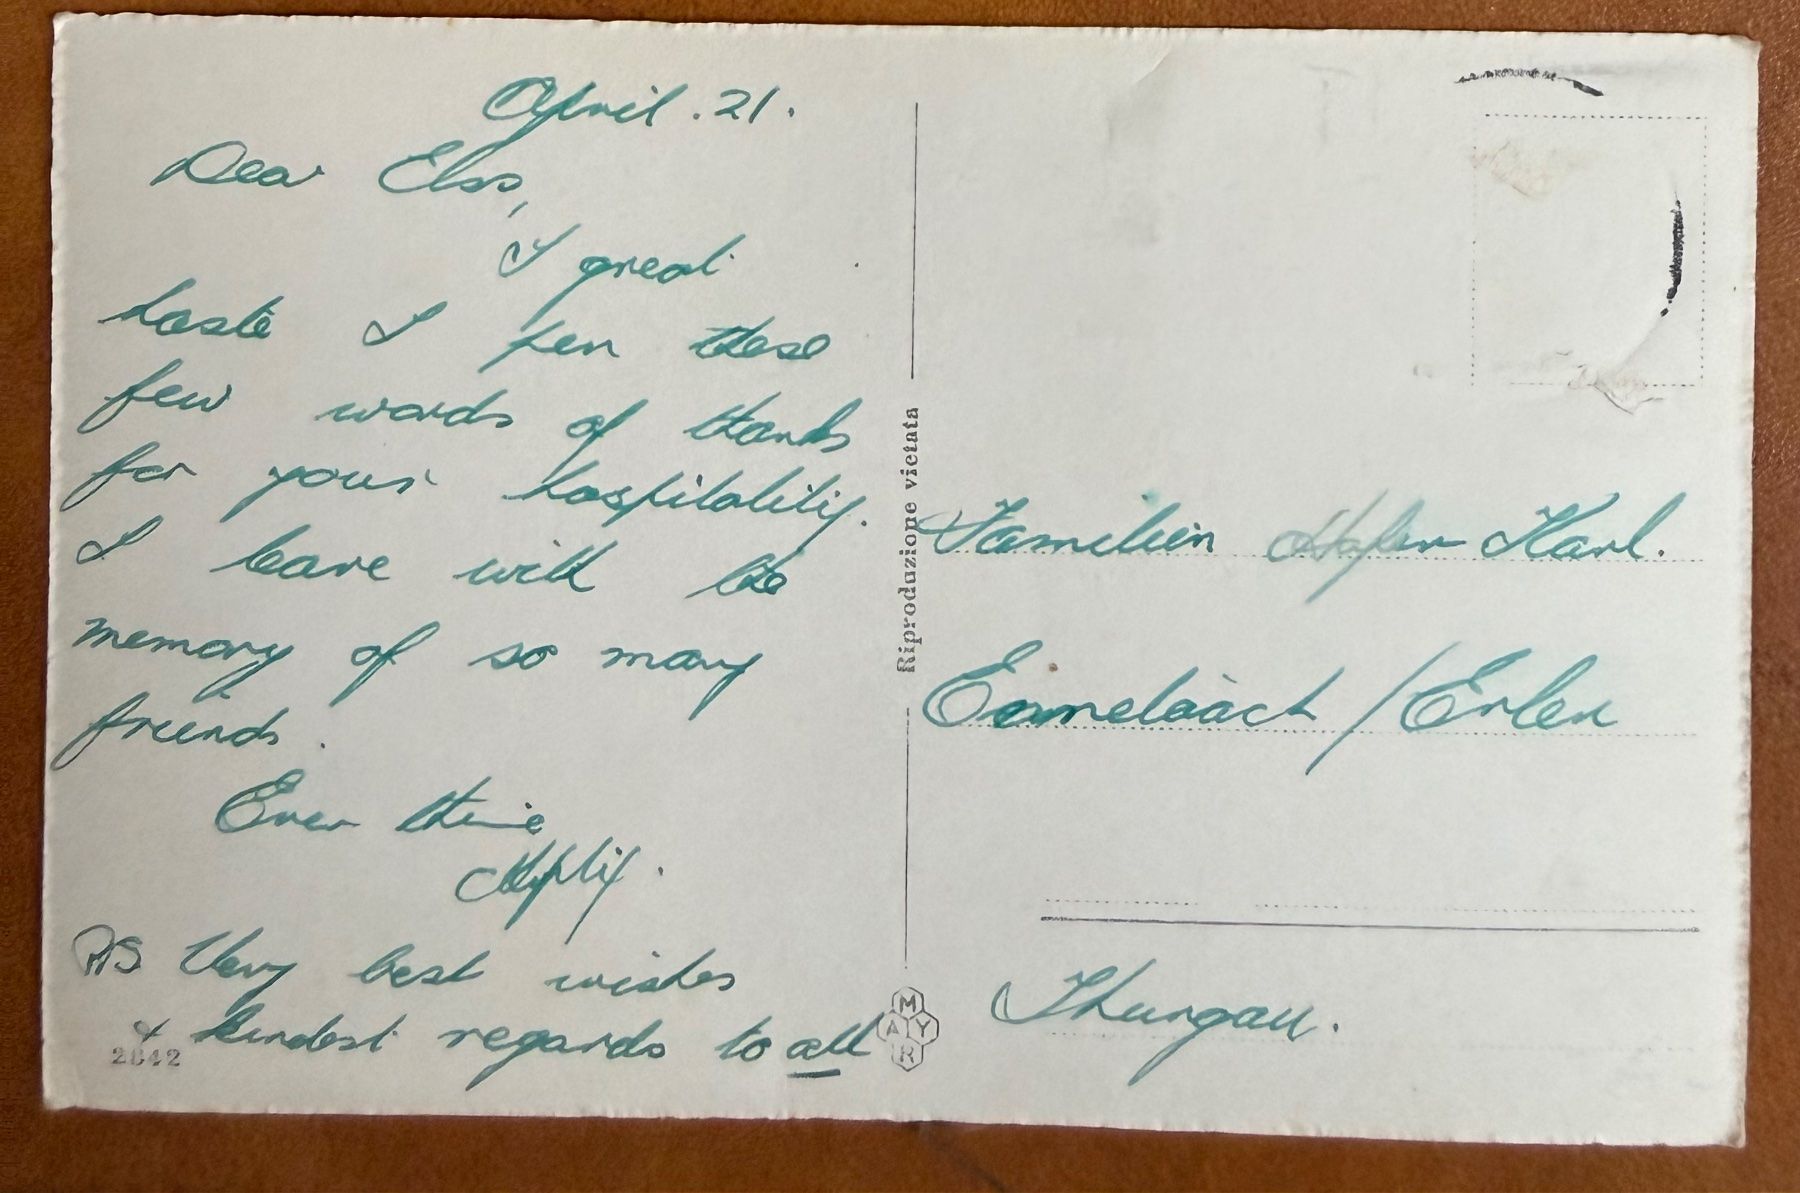 April. 21.
Dear Elss,
I great
haste I pen these
few words of thanks
for your hospitality.
I leave with the
memory of so many
friends.
Ever thine
PS Very best wishes
+ kindest regards to all
2842
Riproduzione vietata
MAYR
Familien Hafen Karl.
Eamelaach / Erlen
Thurgau.